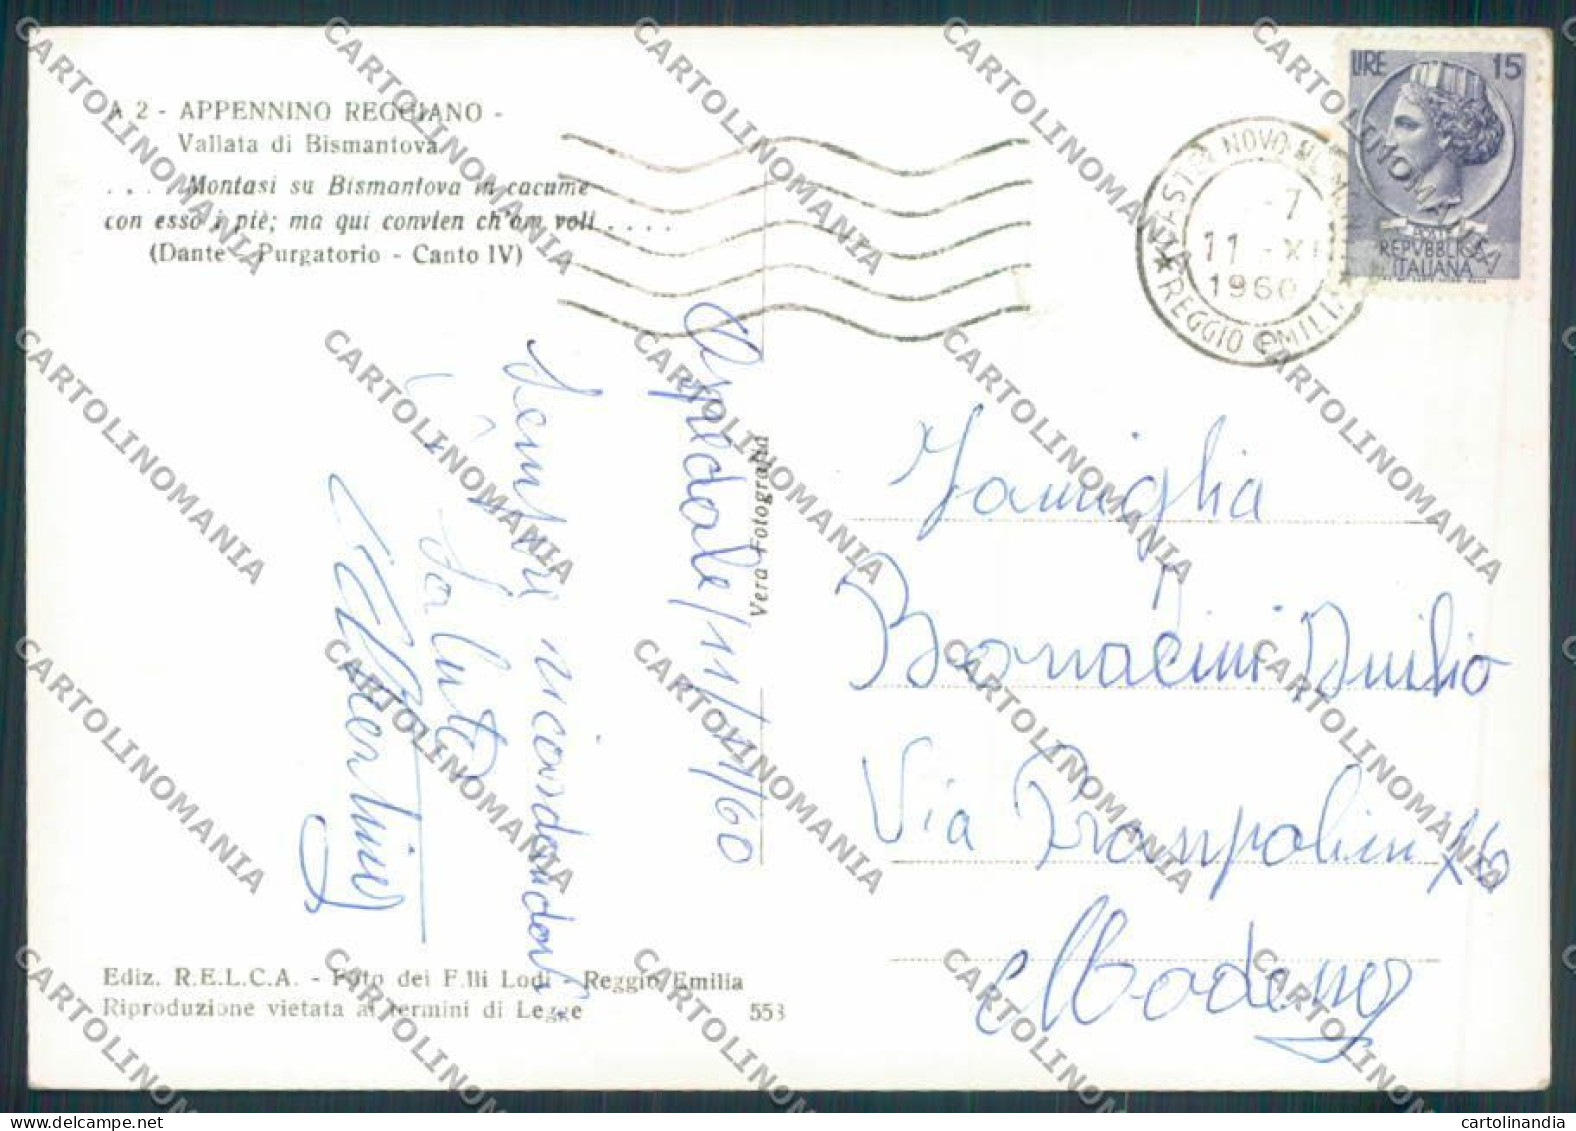 A 2 - APPENNINO REGGIANO -
Vallata di Bismantova
. . . . Montasi su Bismantova in cacume
con esso i piè; ma qui convien ch'om voli . . . .
(Dante - Purgatorio - Canto IV)
LIRE 15
POSTE
REPVBBLICA
ITALIANA
CASTELNOVO NE' MONTI
-7
11 -XI
1960
★ REGGIO EMILIA
Ospedale/11/11/60
Sempre ricordandovi
Vi
saluto
Vera Fotografia
Famiglia
Bonacini Duilio
Via
Modena
Ediz. R.E.L.C.A. - Foto dei F.lli Lodi - Reggio Emilia
Riproduzione vietata ai termini di Legge
553
CARTOLINOMANIA
cartolinandia